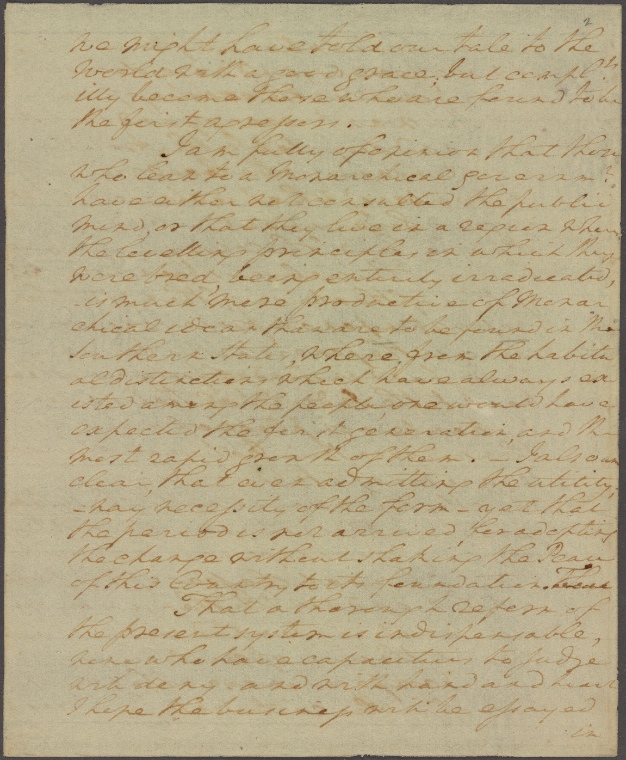 2
we might have told our tale to the
World with a good grace, but compl.ts
illy become those who are found to be
the first agressors.
I am fully of opinion that those
who lean to a Monarchical governmt
have either not consulted the public
mind, or that they live in a region where
the levelling principles in which they
were bred, being entirely irradicated,
is much more productive of Monar
chical ideas than are to be found in the
Southern States, where from the habitu
al distinctions which have always ex
isted among the people, one would have
expected the first generation, and the
most rapid growth of them. - I also am
clear, that even admitting the utility;
- nay necessity of the form - yet that
the period is not arrived for adopting
the change without shaking the Peace
of this Country to its foundation.
That a thorough reform of
the present system is indispensable,
none who have capacities to judge
will deny - and with hand and heart
I hope the business will be essayed
in